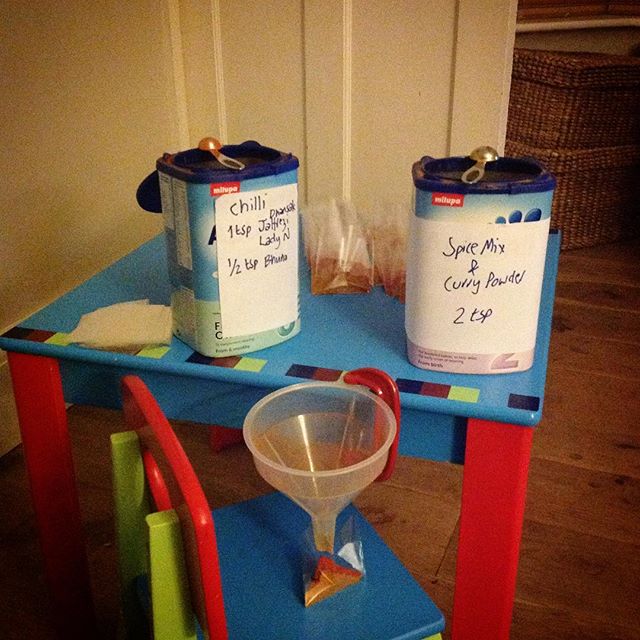 milupa
chilli
Dhansak
1 tsp Jalfrezi
Lady N
1/2 tsp Bhuna
From 6 months
milupa
Spice Mix
&
Curry Powder
2 tsp
2
From birth